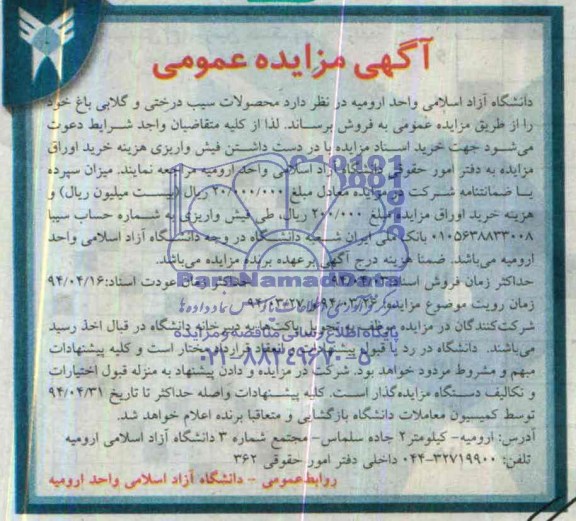 آگهی مزایده عمومی
دانشگاه آزاد اسلامی واحد ارومیه در نظر دارد محصولات سیب درختی و گلابی باغ خود
را از طریق مزایده عمومی به فروش برساند. لذا از کلیه متقاضیان واجد شرایط دعوت
می‌شود جهت خرید اسناد مزایده با در دست داشتن فیش واریزی هزینه خرید اوراق
مزایده به دفتر امور حقوقی دانشگاه آزاد اسلامی واحد ارومیه مراجعه نمایند. میزان سپرده
یا ضمانتنامه شرکت در مزایده معادل مبلغ ۲۰۰/۰۰۰/۰۰۰ ریال (دویست میلیون ریال) و
هزینه خرید اوراق مزایده مبلغ ۲۰۰/۰۰۰ ریال، طی فیش واریزی به شماره حساب سیبا
۰۱۰۵۶۳۸۸۳۳۰۰۸ بانک ملی ایران شعبه دانشگاه در وجه دانشگاه آزاد اسلامی واحد
ارومیه می‌باشد. ضمنا هزینه درج آگهی برعهده برنده مزایده می‌باشد.
حداکثر زمان فروش اسناد: حداکثر زمان عودت اسناد: ۹۴/۰۴/۱۶
زمان رویت موضوع مزایده:
شرکت‌کنندگان در مزایده موظف به تحویل پاکت‌ها به دبیرخانه دانشگاه در قبال اخذ رسید
می‌باشند. دانشگاه در رد یا قبول پیشنهادات و انعقاد قرارداد مختار است و کلیه پیشنهادات
مبهم و مشروط مردود خواهد بود. شرکت در مزایده و دادن پیشنهاد به منزله قبول اختیارات
و تکالیف دستگاه مزایده‌گذار است. کلیه پیشنهادات واصله حداکثر تا تاریخ ۹۴/۰۴/۳۱
توسط کمیسیون معاملات دانشگاه بازگشایی و متعاقبا برنده اعلام خواهد شد.
آدرس: ارومیه- کیلومتر۲ جاده سلماس- مجتمع شماره ۳ دانشگاه آزاد اسلامی ارومیه
تلفن: ۳۲۷۱۹۹۰۰-۰۴۴ داخلی دفتر امور حقوقی ۳۶۲
روابط‌عمومی - دانشگاه آزاد اسلامی واحد ارومیه
ParsNamadData
پایگاه اطلاع رسانی مناقصه و مزایده
۰۲۱-۸۸۳۴۹۶۷۰-۵